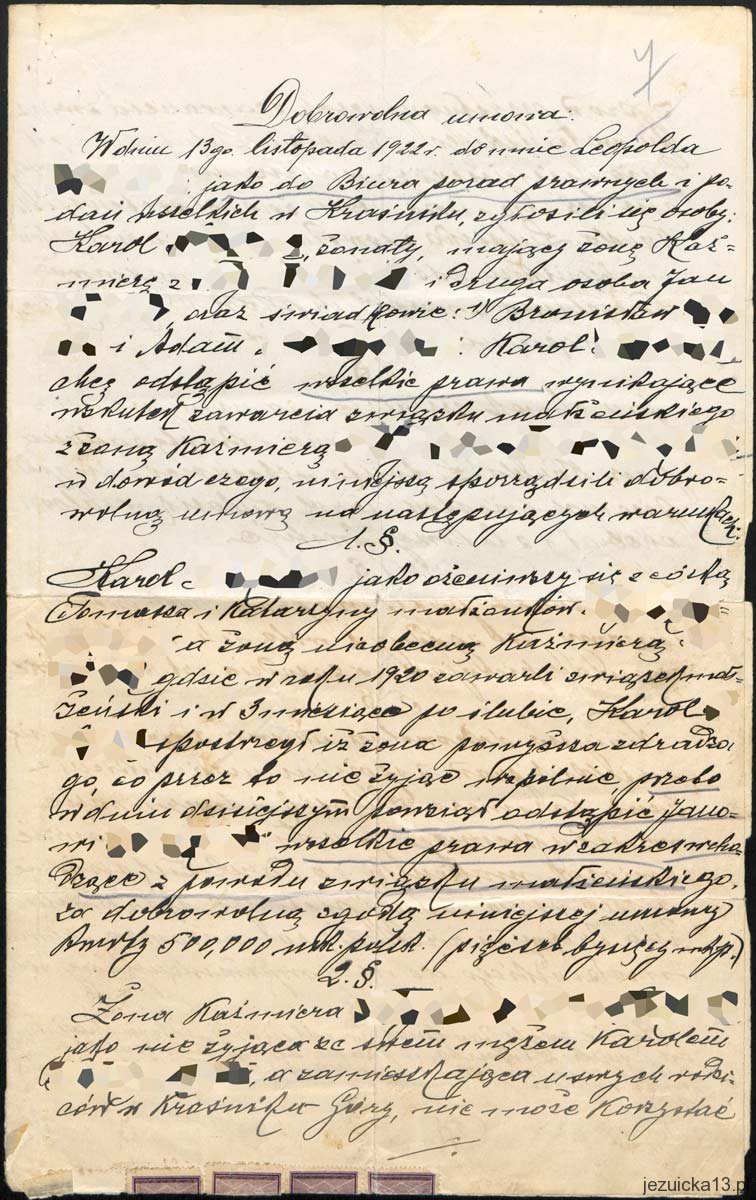 7
Dobrowolna umowa.
W dniu 13go listopada 1922 r. do mnie Leopolda
jako do Biura porad prawnych i po-
dań wszelkich w Kraśniku, zgłosili się osoby:
Karol żonaty, mający żonę Kaź-
mierę z i druga osoba Jan
oraz świadkowie: 1) Bronisław
i Adam Karol
chcą odstąpić wszelkie prawa wynikające
wskutek zawarcia związku małżeńskiego
z żoną Kaźmierą
w dowód czego, niniejszą sporządzili dobro-
wolną umowę na następujących warunkach:
1. §.
Karol jako ożeniwszy się z córką
Tomasza i Katarzyny małżonków
a żoną nieobecną Kaźmierą
gdzie w roku 1920 zawarli związek mał-
żeński i w 3 miesiące po ślubie, Karol
spostrzegł iż żona powyższa zdradza
go, co przez to nie żyjąc wspólnie, przeto
w dniu dzisiejszym powziął odstąpić Jano-
wi wszelkie prawa w zakres wcho-
dzące z powodu związku małżeńskiego,
za dobrowolną zgodą niniejszej umowy
kwoty 500,000 mk. polsk. (pięćset tysięcy mkp.)
2. §.
Żona Kaźmiera
jako nie żyjąca ze swem mężem Karolem
, a zamieszkająca u swych rodzi-
ców w Kraśniku Góry, nie może korzystać
jezuicka13.p